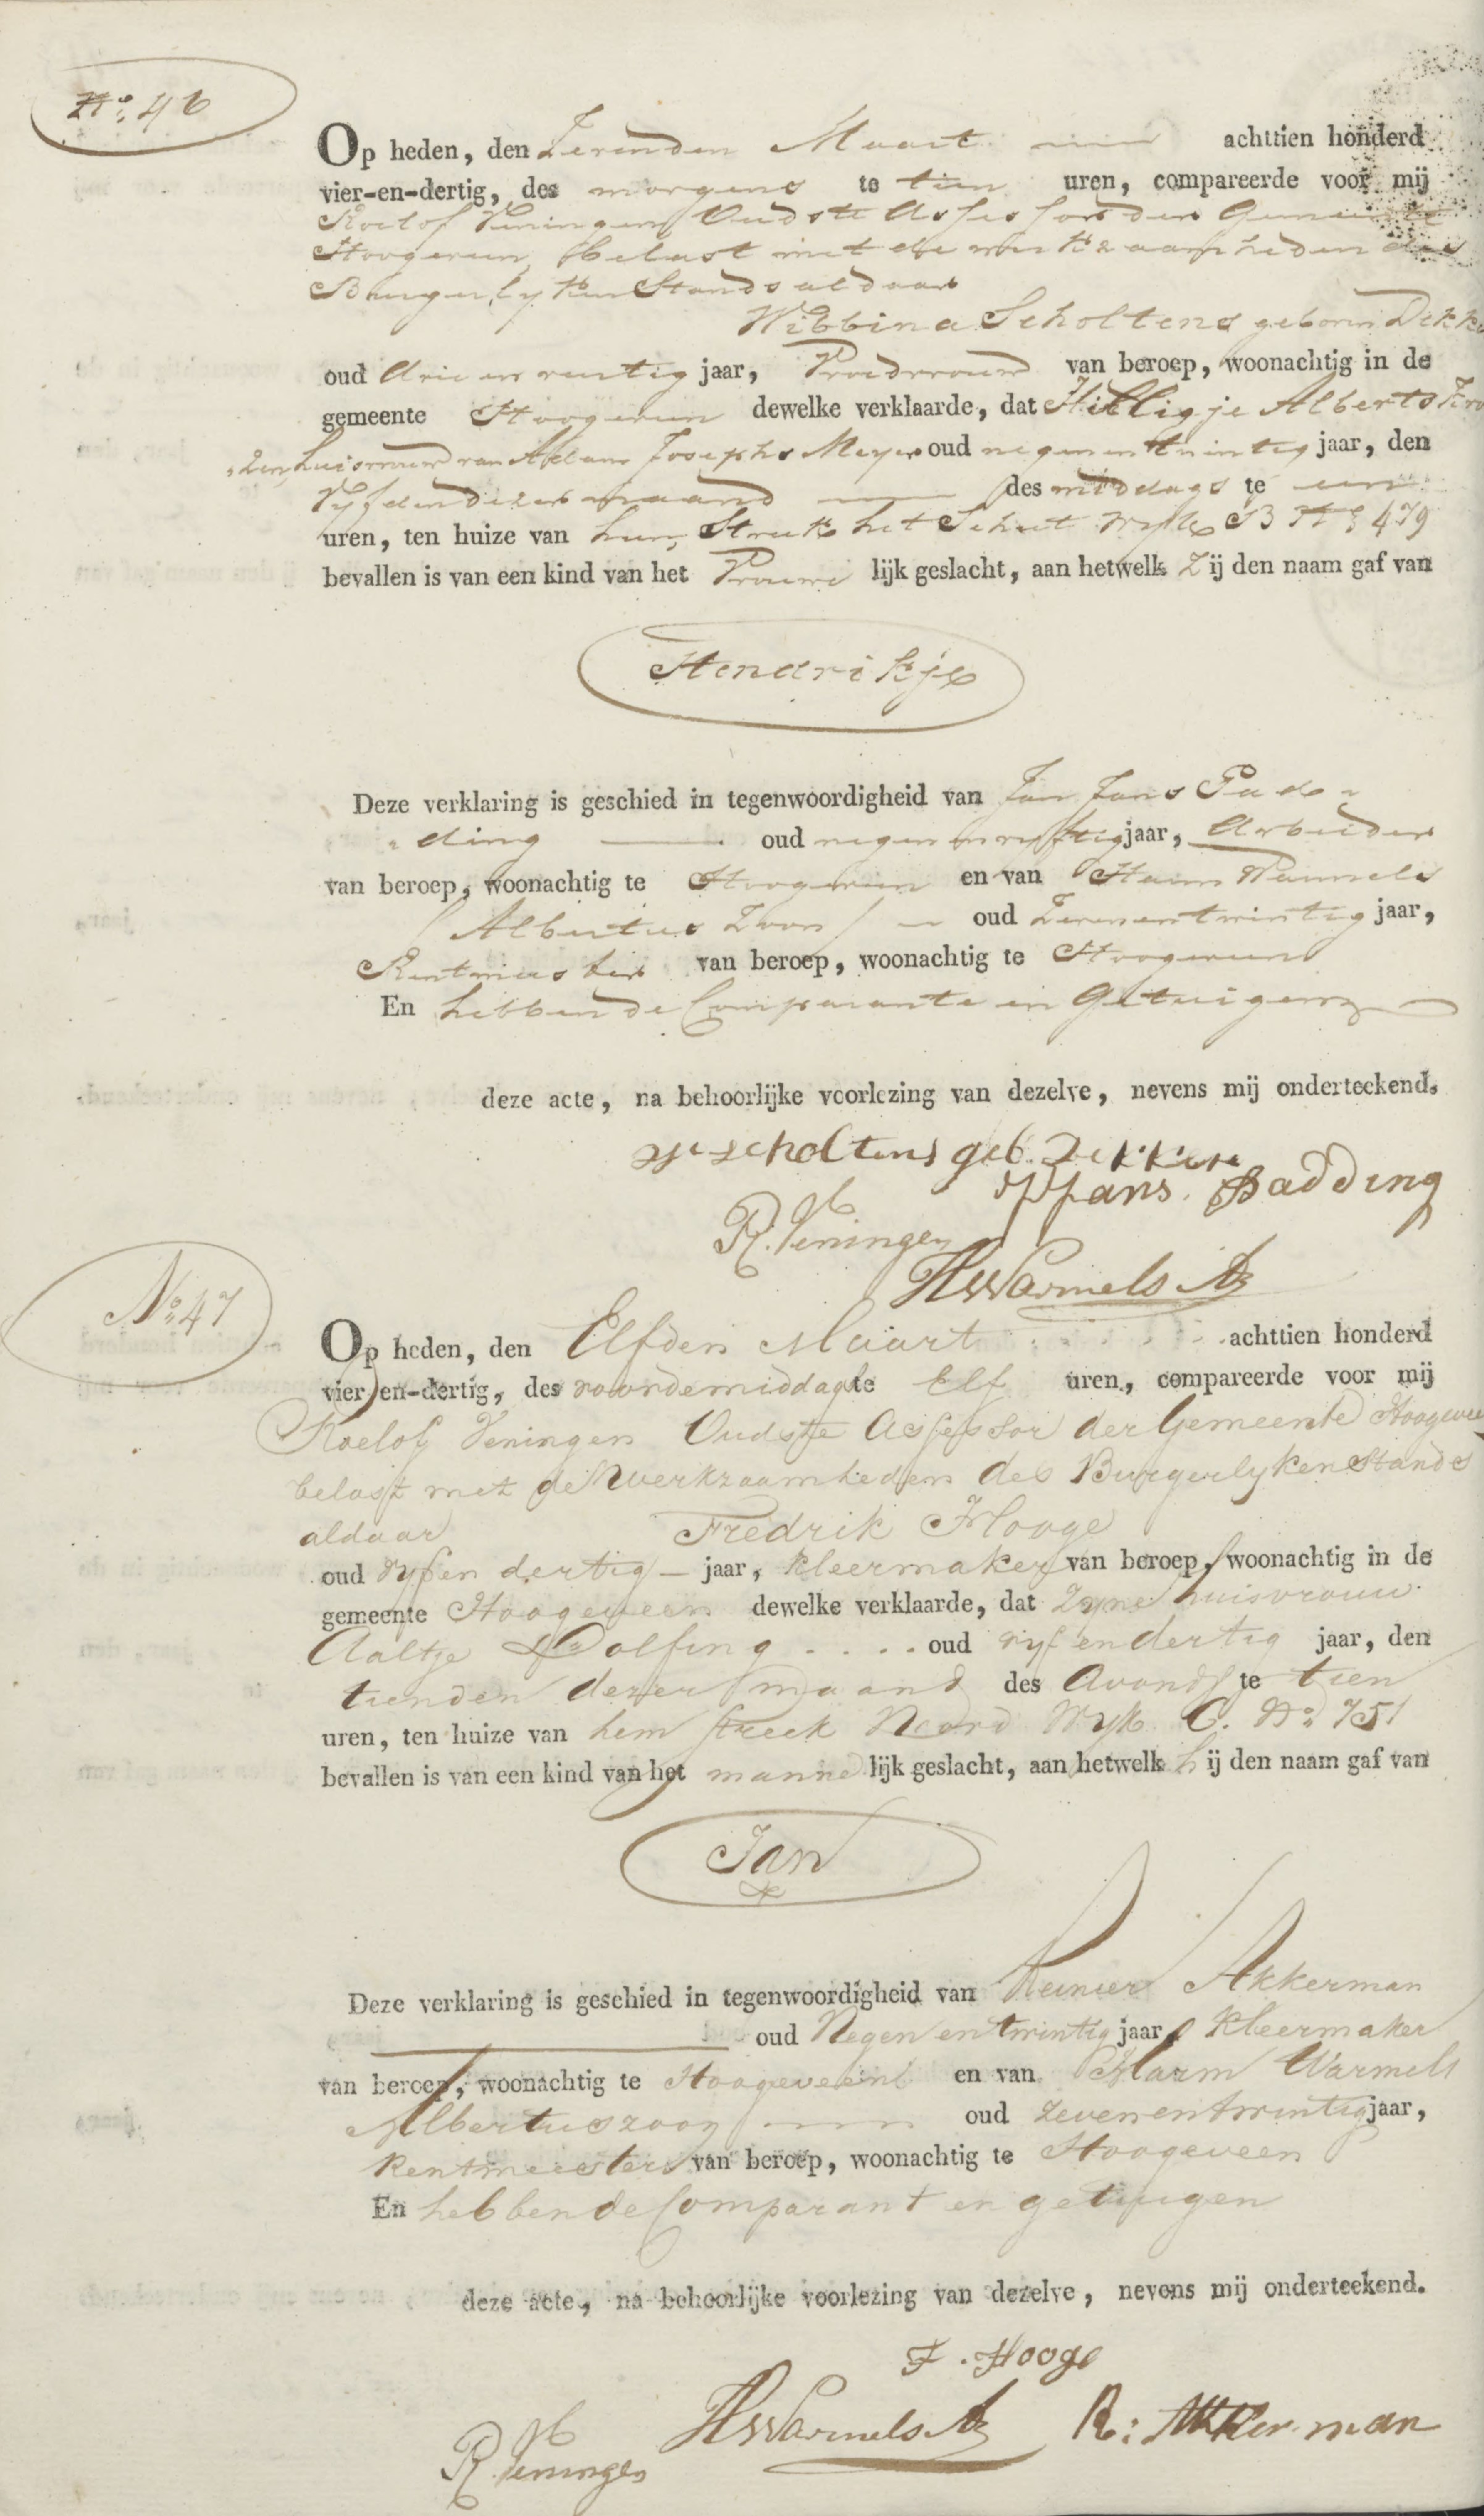 No. 46
Op heden, den Zevenden Maart achttien honderd
vier-en-dertig, des morgens te tien uren, compareerde voor mij
Roelof Veningen Oudste Assessor der Gemeente
Hoogeveen, belast met de werkzaamheden des
Burgerlyken Stands aldaar
Wibbina Scholtens geboren Dekker
oud drie en jaar, Vroedvrouw van beroep, woonachtig in de
gemeente Hoogeveen dewelke verklaarde, dat Hilligje Alberts
huisvrouw van Adam Josephs Meyer oud negenentwintig jaar, den
Vyfden dezer maand des middags te een
uren, ten huize van hun, Streek het Schut Wyk B No 479
bevallen is van een kind van het Vrouwe lijk geslacht, aan hetwelk Zij den naam gaf van
Hendrikje
Deze verklaring is geschied in tegenwoordigheid van Jan Jans Pad-
-ding oud negenenvyftig jaar, Arbeider
van beroep, woonachtig te Hoogeveen en van Harm Warmels
(Albertus Zoon) oud Zevenentwintig jaar,
Rentmeester van beroep, woonachtig te Hoogeveen
En hebben de Comparante en Getuigen
deze acte, na behoorlijke voorlezing van dezelve, nevens mij onderteekend.
W Scholtens geb. Dekker
JJans. Padding
R. Veningen
HWarmels Az
No. 47
Op heden, den Elfden Maart achttien honderd
vier-en-dertig, des voordemiddags te Elf uren, compareerde voor mij
Roelof Veningen Oudste Assessor der Gemeente Hoogeveen
belast met de Werkzaamheden des Burgerlyken Stands
aldaar Fredrik Hooge
oud vyfen dertig jaar, kleermaker van beroep, woonachtig in de
gemeente Hoogeveen dewelke verklaarde, dat zyne huisvrouw
Aaltje Dolfing oud vyf en dertig jaar, den
tienden dezer maand des Avonds te tien
uren, ten huize van hem Streek Noord Wyk C. No 751
bevallen is van een kind van het manne lijk geslacht, aan hetwelk hij den naam gaf van
Jan
Deze verklaring is geschied in tegenwoordigheid van Reinier Akkerman
oud Negen en twintig jaar, kleermaker
van beroep, woonachtig te Hoogeveen en van Harm Warmels
Albertuszoon oud zevenentwintig jaar,
Rentmeester van beroep, woonachtig te Hoogeveen
En hebben de Comparant en getuigen
deze acte, na behoorlijke voorlezing van dezelve, nevens mij onderteekend.
F. Hooge
HWarmels Az R: Akkerman
R. Veningen